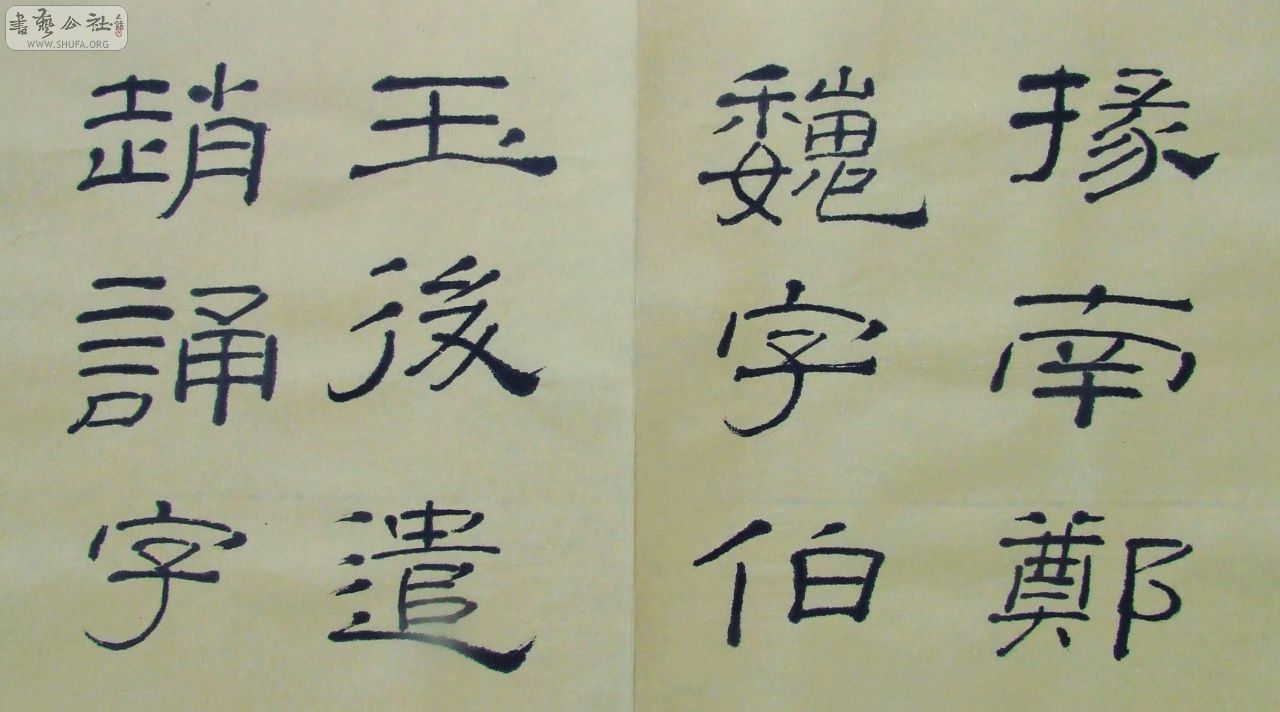 掾南鄭
魏字伯
玉後遣
趙誦字
書藝公社
WWW.SHUFA.ORG